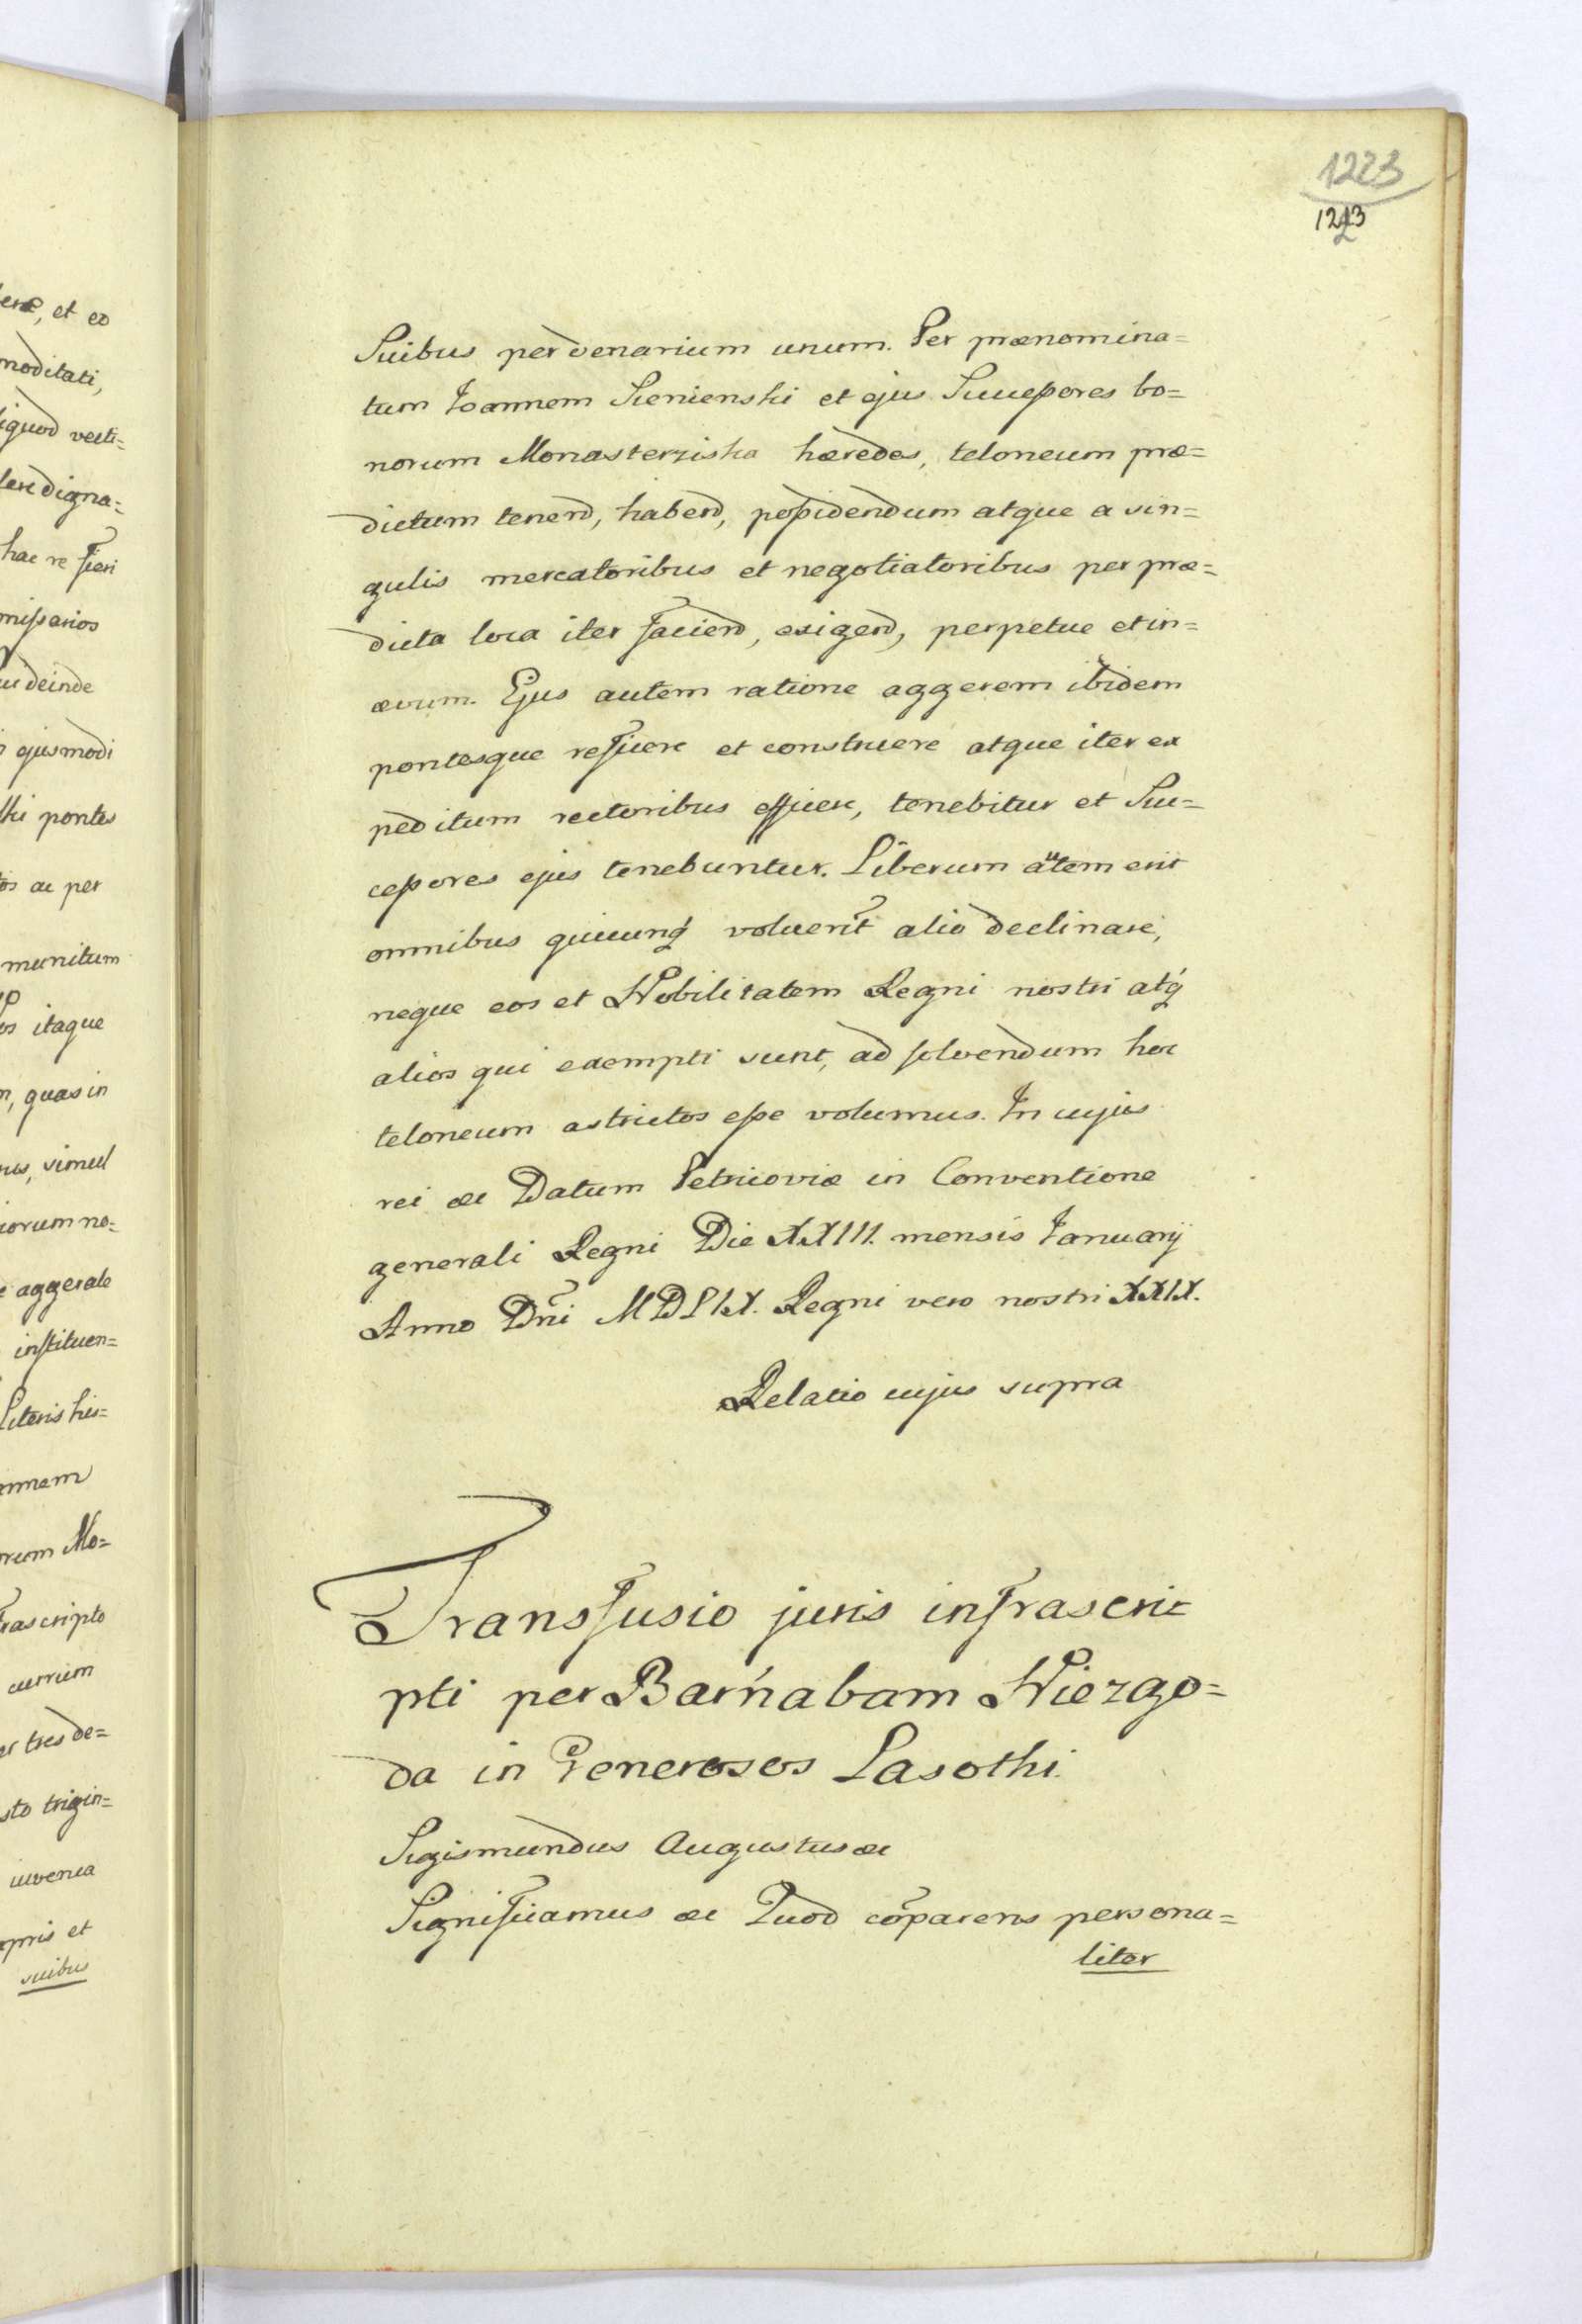 1223
1223
Suibus per denarium unum. Per prænomina=
tum Joannem Sienienski et ejus Successores bo=
norum Monasterziska hæredes, teloneum præ=
dictum tenend, habend, possidendum atque a sin=
gulis mercatoribus et negotiatoribus per præ=
dicta loca iter faciend, exigend, perpetue et in=
ævum. Ejus autem ratione aggerem ibidem
pontesque reficere et construere atque iter ex
peditum vectoribus efficere, tenebitur et Suc=
cessores ejus tenebuntur. Liberum autem erit
omnibus quicunq́ voluerit̃ alio declinare,
neque eos et Nobilitatem Regni nostri atq́
alios qui exempti sunt, ad solvendum hoc
teloneum astrictos esse volumus. In cujus
rei &c Datum Petricoviæ in Conventione
generali Regni Die XXIII. mensis Januarÿ
Anno Dñi MDLIX. Regni vero nostri XXIX.
Relatio cujus supra
Transfusio juris infrascri=
pti per Barnabam Niezgo=
da in Generosos Lasothi.
Sigismundus Augustus &c
Significamus &c Quod cõparens persona=
liter
ere, et eo
moditati,
iquod vecti=
hac re fieri
missarios
deinde
ejusmodi
pontes
ac per
munitum
os itaque
quas in
simul
iorum no=
aggerale
instituen=
Literis his=
annem
rum Mo=
frascripto
currum
er tres de=
sto trigin=
iuvenca
apris et
suibus